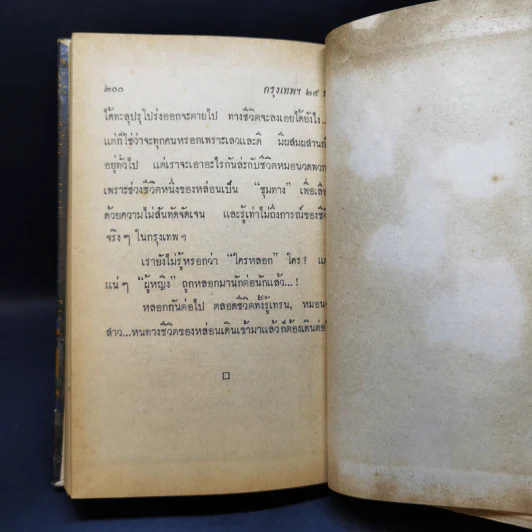 ๒๐๐ กรุงเทพฯ ๒๕
ได้ทะลุปรุโปร่งออกจะตายไป ทางชีวิตจะลงเอยได้ยังไง...
แต่ก็ใช่ว่าจะทุกคนหรอกเพราะเลวและดี มีผสมผสานก
อยู่ทั่วไป แต่เราจะเอาอะไรกันล่ะกับชีวิตหมอนวดพวก
เพราะช่วงชีวิตหนึ่งของหล่อนเป็น “ชุมทาง” เพื่อเลือ
ด้วยความไม่สันทัดจัดเจน และรู้เท่าไม่ถึงการณ์ของชี
จริงๆ ในกรุงเทพฯ
เรายังไม่รู้หรอกว่า “ใครหลอก” ใคร?
แน่ๆ “ผู้หญิง” ถูกหลอกมานักต่อนักแล้ว...!
หลอกกันต่อไป ตลอดชีวิตทั้งรู้เทรน, หมอน
สาว...หนทางชีวิตของหล่อนเดินเข้ามาแล้วก็ต้องเดินต่อ